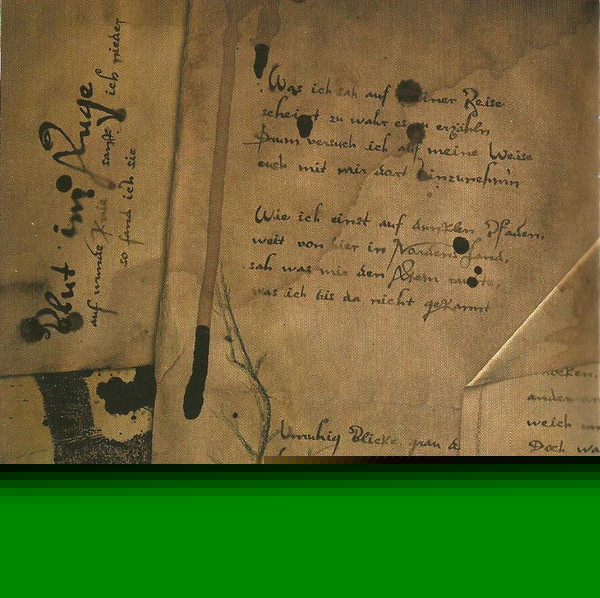 Blut im Auge
auf wunde Knie sanft ich nieder
so fand ich sie
Was ich sah auf meiner Reise
scheint zu wahr es zu erzähln
Drum versuch ich auf meine Weise
euch mit mir dort hinzunehm'n
Wie ich einst auf dunklen Pfaden,
weit von hier in Nordens Land,
sah was mir den Atem raubte,
was ich bis da nicht gekannt
Unruhig Blicke, grau
ocken,
andern
weich
Doch wa